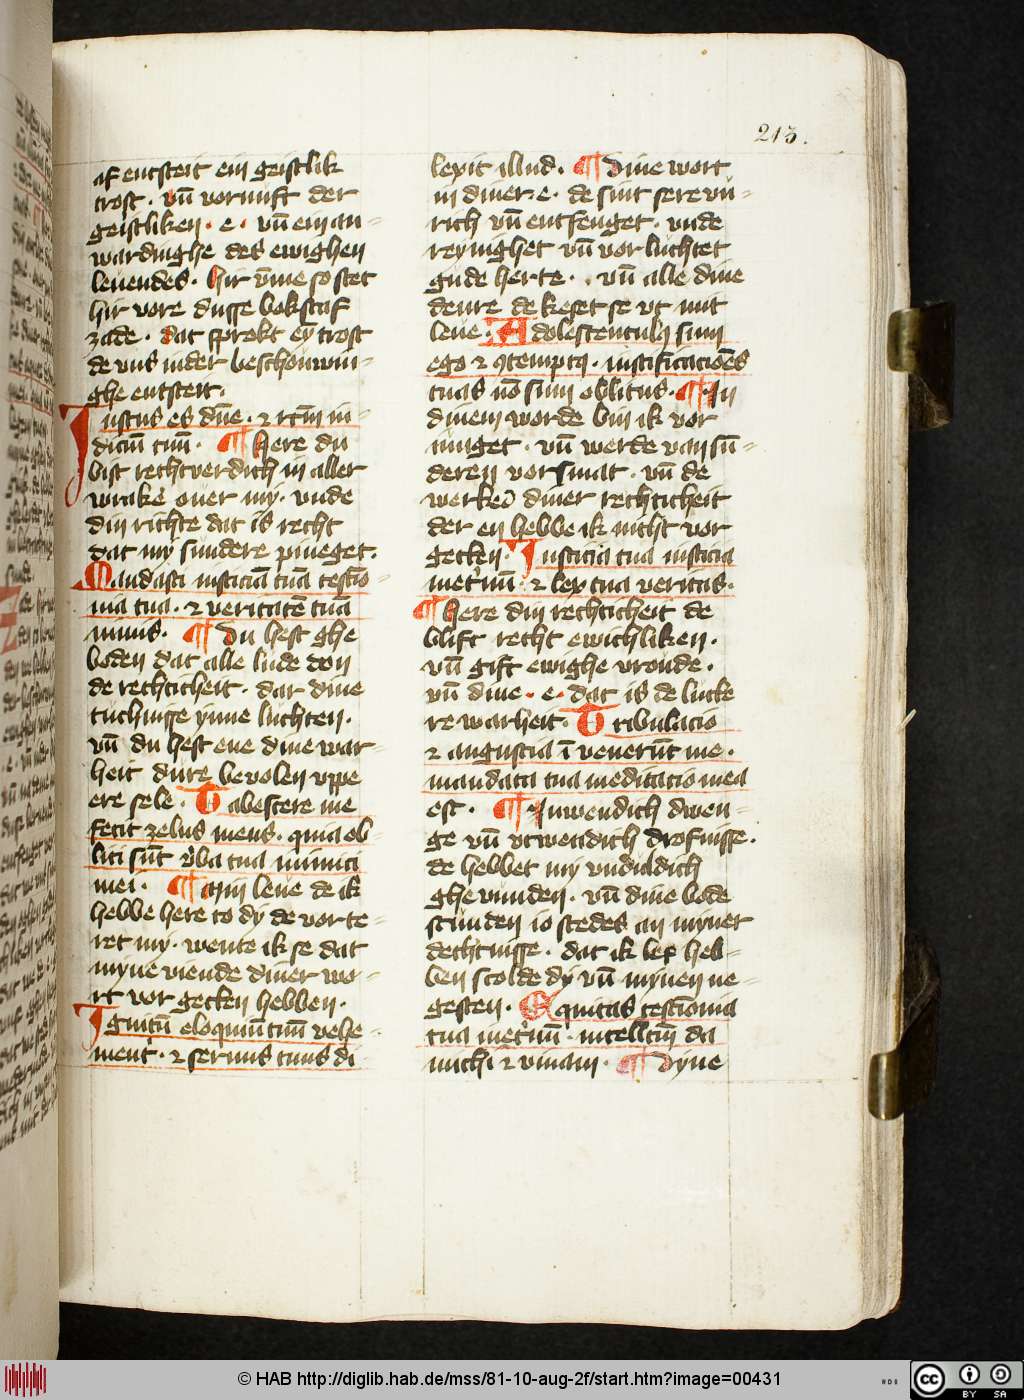 213.
af entsteit ein geistlik
trost · vn̄ vornuft der
geistliken · e · vn̄ ein an-
wardinghe des ewighen
leuendes · hir vm̄e so stet
hir vore dusse bokstaf
zade · dat sprekt ey̅ trost
de uns in der beschouwin-
ghe entsteit ·
Iustus es dn̄e · ⁊ rc̄m in-
diciū tuū · ¶ Here du
bist rechtverdich in aller
wrake ouer my · vnde
din richte dat is recht
dat my sundere pineget ·
Mandasti iusticiā tuā testīo-
nia tua · ⁊ veritatē tuā
nimis · ¶ Du hest ghe
boden dat alle lude don
de rechticheit · dar dine
tuchnisse ynne luchten ·
vn̄ du hest ene dine war-
heit dure bevolen vppe
ere sele · Tabescere me
fecit zelus meus · quia ob-
liti sūt v̓ba tua inimici
mei · ¶ Myn leue de ik
hebbe here to dy de vorte-
ret my · wente ik se dat
myne viende diner wo-
rt vor gecken hebben ·
Ignitū eloquiū tuū vehe-
ment᷑ · ⁊ seruus tuus di-
lexit illud · ¶ Dine wort
in diner · e · de sint sere vū-
rich vn̄ entfenget · vnde
reyninghet vn̄ vorluchtet
gude herte · vn̄ alle dine
denre de keset se vt mit
leue · Adolescentulꝯ sum
ego ⁊ ꝯtemptꝯ · iustificatiōes
tuas nō sum oblitus · ¶ In
dinem worde bin ik vor
iunget · vn̄ werde van sū-
deren vorsmat · vn̄ de
werke diner rechticheit
der en hebbe ik nicht vor
gecken · Iusticia tua iusticia
in et᷑nū · ⁊ lex tua veritas ·
¶ Here din rechticheit de
blift recht ewichliken ·
vn̄ gift ewighe vroude ·
vn̄ dine · e · dat is de lucke
re warheit · Tribulacio
⁊ angustia ī venerūt me ·
mandata tua meditacio mea
est · ¶ Inwendich dwen-
ge vn̄ vtwendich drofnisse ·
de hebbet my vnduldich
ghe vunden · vn̄ dine bode
stunden io stedes an myner
dechtnisse · dat ik lef heb-
ben scolde dy vn̄ mynen ne-
gesten · Equitas testīonia
tua in et᷑nū · intellc̄m da
michi ⁊ viuam · ¶ Dyne
© HAB http://diglib.hab.de/mss/81-10-aug-2f/start.htm?image=00431
HAB
cc BY SA